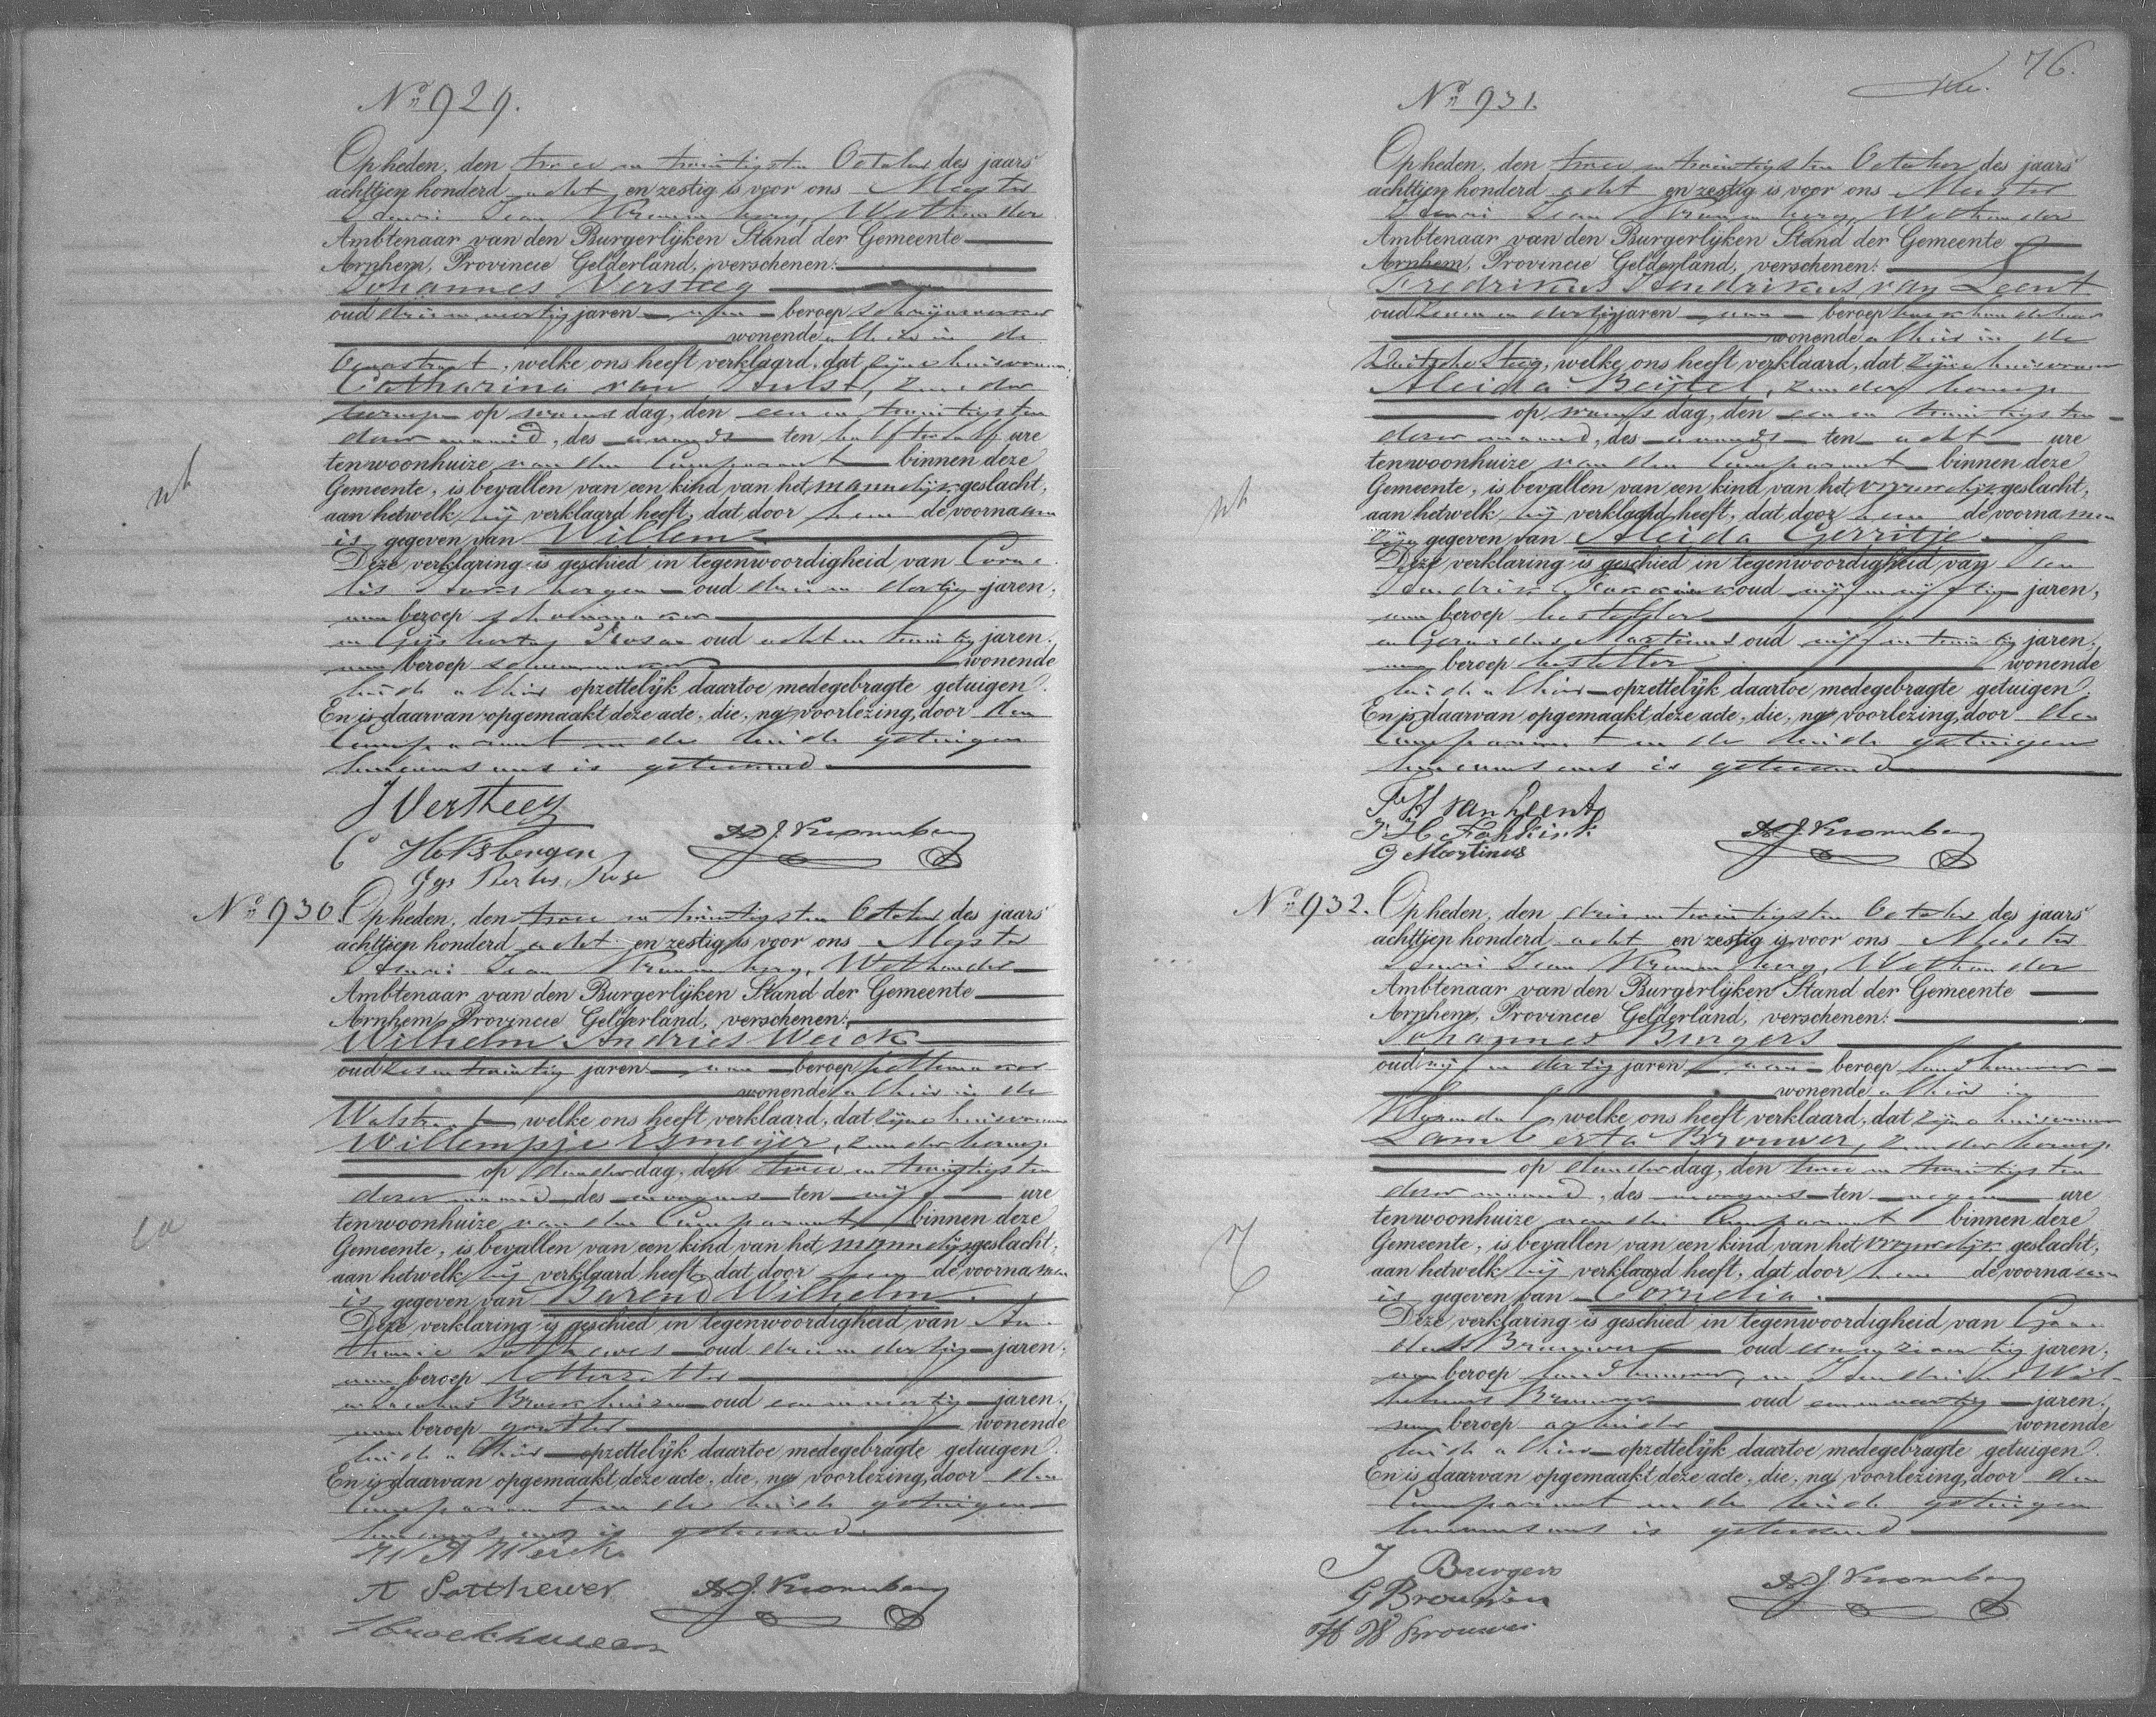 No 929.
Op heden, den twee en twintigsten October des jaars
achttien honderd acht en zestig is voor ons Meester
Henri Jean Kronenberg, Wethouder
Ambtenaar van den Burgerlijken Stand der Gemeente
Arnhem, Provincie Gelderland, verschenen:
Johannes Versteeg
oud drie en veertig jaren van beroep schrijnwerker
wonende alhier in de
welke ons heeft verklaard, dat zijne huisvrouw
Catharina van Hulst, zonder
beroep op woensdag, den een en twintigsten
dezer maand, des avonds ten half twaalf ure
ten woonhuize van den Comparant binnen deze
Gemeente, is bevallen van een kind van het mannelijk geslacht,
aan hetwelk hij verklaard heeft, dat door hem de voornaam
is gegeven van Willem
Deze verklaring is geschied in tegenwoordigheid van Corne
lis Hoksbergen oud drie en dertig jaren,
van beroep schoenmaker
en Gijsbertus Rosa oud acht en twintig jaren,
van beroep schoenmaker wonende
beide alhier opzettelijk daartoe medegebragte getuigen.
En is daarvan opgemaakt deze acte, die, na voorlezing, door den
Comparant en de beide getuigen
benevens ons is geteekend.
J Versteeg
C Hoksbergen H. J. Kronenberg
nh
No 930. Op heden, den twee en twintigsten October des jaars
achttien honderd acht en zestig is voor ons Meester
Henri Jean Kronenberg, Wethouder
Ambtenaar van den Burgerlijken Stand der Gemeente
Arnhem, Provincie Gelderland, verschenen:
Wilhelm Andries Weick
oud zes en twintig jaren van beroep pettemaker
wonende alhier in de
Walstraat welke ons heeft verklaard, dat zijne huisvrouw
Willempje Esmeijer, zonder beroep
op donderdag, den twee en twintigsten
dezer maand des morgens ten vijf ure
ten woonhuize van den Comparant binnen deze
Gemeente, is bevallen van een kind van het mannelijk geslacht,
aan hetwelk hij verklaard heeft, dat door hem de voornamen
is gegeven van Barend Wilhelm.
Deze verklaring is geschied in tegenwoordigheid van An
oud drie en dertig jaren,
van beroep letterzetter
Broekhuizen oud een en veertig jaren,
van beroep wonende
beide alhier opzettelijk daartoe medegebragte getuigen.
En is daarvan opgemaakt deze acte, die, na voorlezing, door den
Comparant en de beide getuigen
benevens ons is geteekend.
W A Weick
H. J. Kronenberg
Broekhuizen
76.
No 931.
Op heden, den twee en twintigsten October des jaars
achttien honderd acht en zestig is voor ons Meester
Henri Jean Kronenberg, Wethouder
Ambtenaar van den Burgerlijken Stand der Gemeente
Arnhem, Provincie Gelderland, verschenen:
Fredrikus Hendrikus van Leent
oud zeven en dertig jaren van beroep boekhandelaar
wonende alhier in de
welke ons heeft verklaard, dat zijne huisvrouw
Aleida Beijtel, zonder beroep
op woensdag, den een en twintigsten
dezer maand, des avonds ten acht ure
ten woonhuize van den Comparant binnen deze
Gemeente, is bevallen van een kind van het vrouwelijk geslacht,
aan hetwelk hij verklaard heeft, dat door hem de voornamen
zijn gegeven van Aleida Gerritje
Deze verklaring is geschied in tegenwoordigheid van Jan
Hendrik Fokkink oud vijf en vijftig jaren,
van beroep besteller
en Gerardus Martinus oud vijf en twintig jaren,
van beroep besteller wonende
beide alhier opzettelijk daartoe medegebragte getuigen.
En is daarvan opgemaakt deze acte, die, na voorlezing, door den
Comparant en de beide getuigen
benevens ons is geteekend
F H van Leent
J H Fokkink H. J. Kronenberg
G Martinus
nh
No 932. Op heden, den drie en twintigsten October des jaars
achttien honderd acht en zestig is voor ons Meester
Henri Jean Kronenberg, Wethouder
Ambtenaar van den Burgerlijken Stand der Gemeente
Arnhem, Provincie Gelderland, verschenen:
Johannes Burgers
oud vijf en dertig jaren van beroep landbouwer
wonende alhier in
Klarendal welke ons heeft verklaard, dat zijne huisvrouw
Lamberta Brouwer, zonder beroep
op donderdag, den twee en twintigsten
dezer maand, des morgens ten negen ure
ten woonhuize van den Comparant binnen deze
Gemeente, is bevallen van een kind van het vrouwelijk geslacht,
aan hetwelk hij verklaard heeft, dat door hem de voornaam
is gegeven van Cornelia.
Deze verklaring is geschied in tegenwoordigheid van
Brouwer oud jaren,
van beroep landbouwer, en Hendrik Wil
helmus Brouwer oud een en veertig jaren,
van beroep arbeider wonende
beide alhier opzettelijk daartoe medegebragte getuigen.
En is daarvan opgemaakt deze acte, die, na voorlezing, door den
Comparant en de beide getuigen
benevens ons is geteekend
J Burgers
G Brouwer H. J. Kronenberg
H W Brouwer